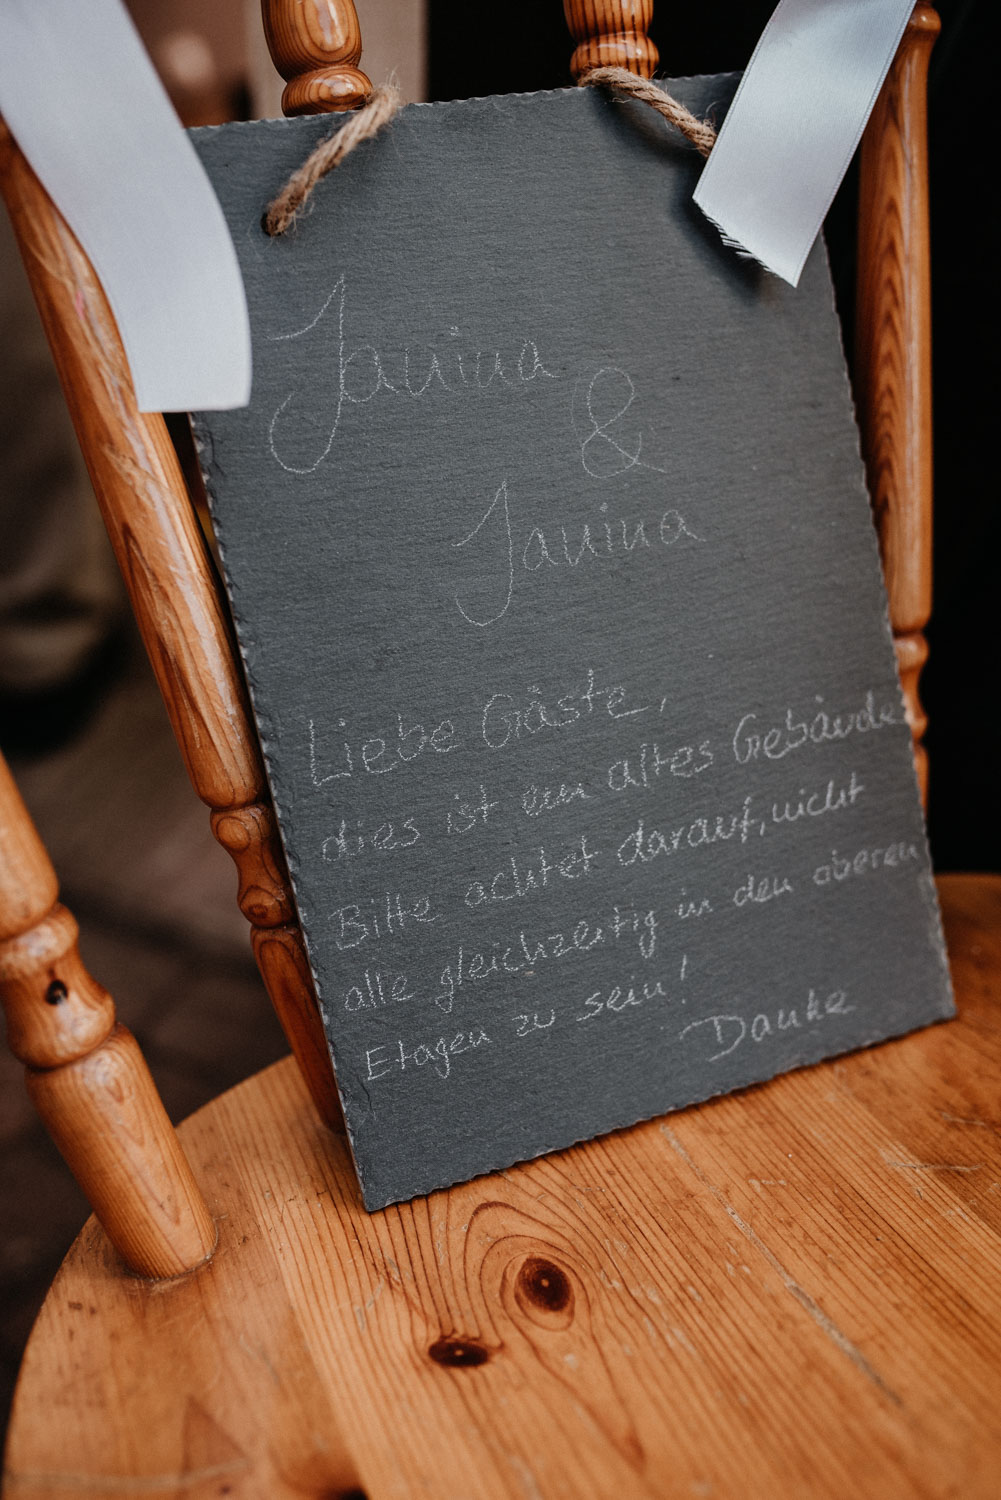 Janina
&
Janina
Liebe Gäste,
dies ist ein altes Gebäude
Bitte achtet darauf, nicht
alle gleichzeitig in den oberen
Etagen zu sein!
Danke